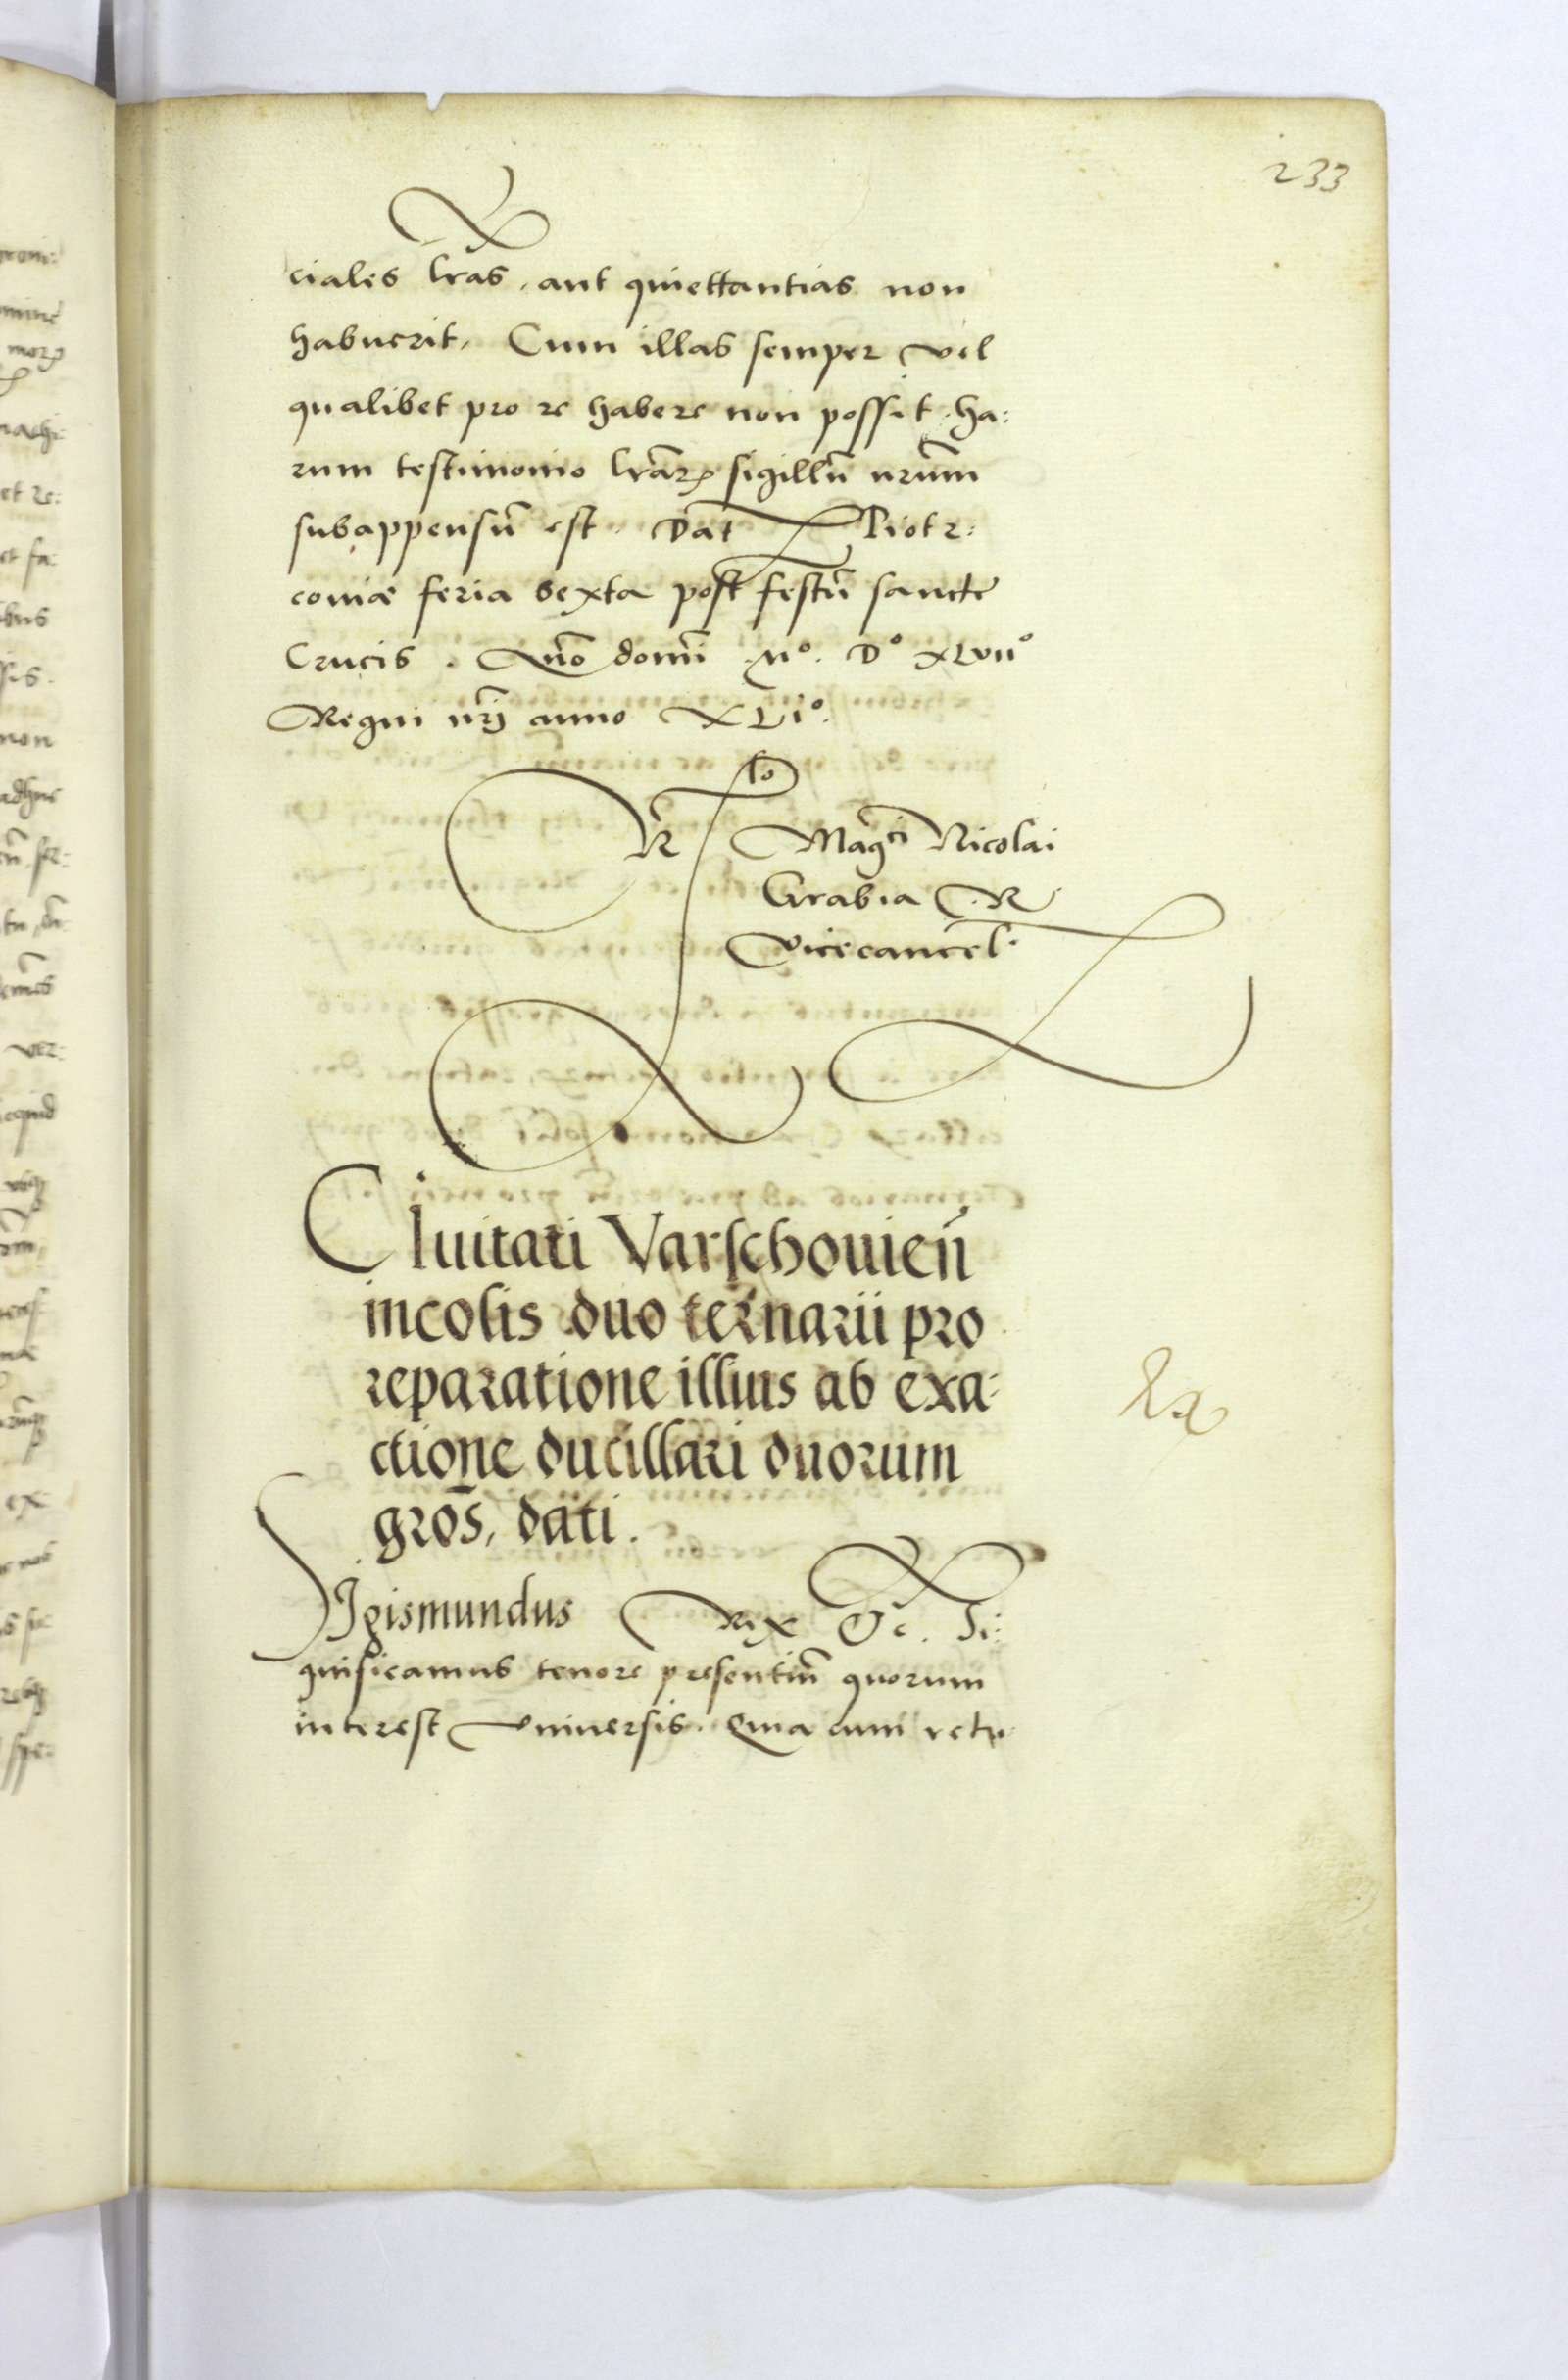 233
ciales lr̃as, aut quiettantias non
habuerit, Cum illas semper vel
qualibet pro re habere non possit. ha:
rum testimonio lr̃aꝝ sigillũ nrũm
subappensũ est. Dat̃ Piotr:
coniæ feria sexta post festũ sancte
Crucis. Año domĩ M°. D° XLVII°
Regni nrĩ anno XLI°.
Rlo
Mag̃ci Nicolai
Grabia R
Vicecancel.
CIuitati Varschouieñ
incolis duo ternarii pro
reparatione illius ab exa:
ctione ducillari duorum
gros̃, dati.
SIgismundus Rex &c. Si:
gnificamus tenore presentiũ quorum
interest vniuersis. Quia cum retu